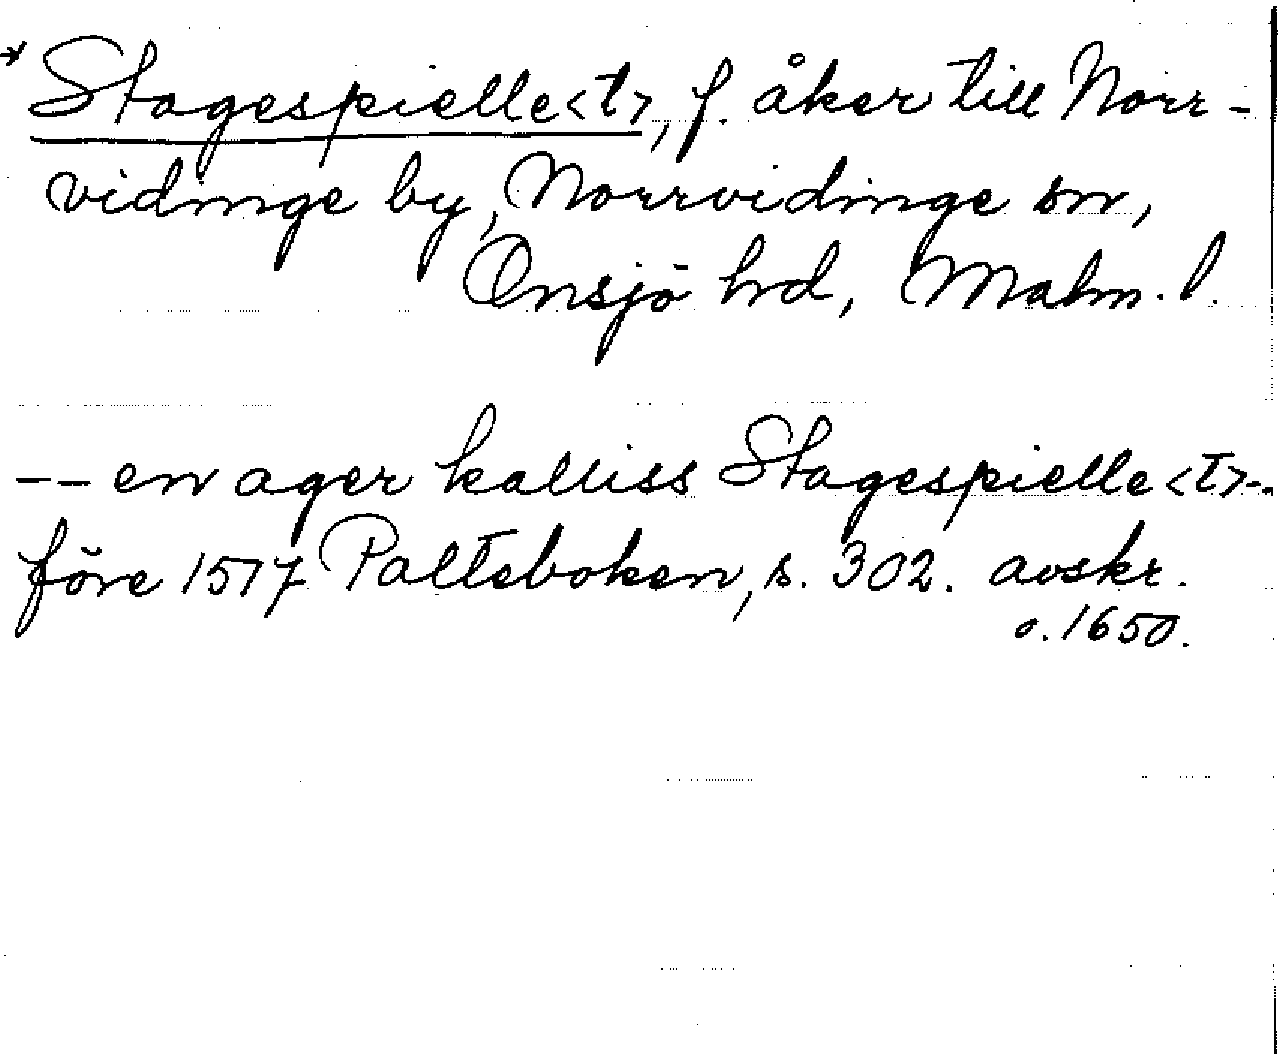 * Stagespielle<t>, f. åker till Norr-
vidinge by, Norrvidinge sn,
Onsjö hd, Malm. l.
-- en ager kalliss Stagespielle<t>-.
före 1517 Palteboken, s. 302. avskr.
o. 1650.